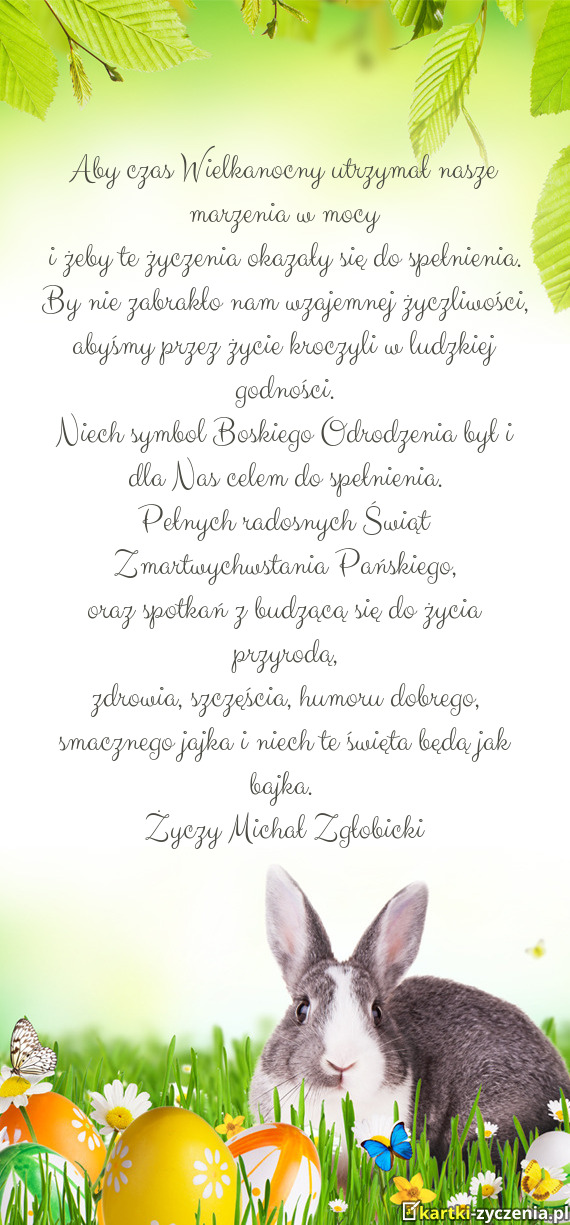 Aby czas Wielkanocny utrzymał nasze
marzenia w mocy
i żeby te życzenia okazały się do spełnienia.
By nie zabrakło nam wzajemnej życzliwości,
abyśmy przez życie kroczyli w ludzkiej
godności.
Niech symbol Boskiego Odrodzenia był i
dla Nas celem do spełnienia.
Pełnych radosnych Świąt
Zmartwychwstania Pańskiego,
oraz spotkań z budzącą się do życia
przyrodą,
zdrowia, szczęścia, humoru dobrego,
smacznego jajka i niech te święta będą jak
bajka.
Życzy Michał Zgłobicki
kartki-zyczenia.pl